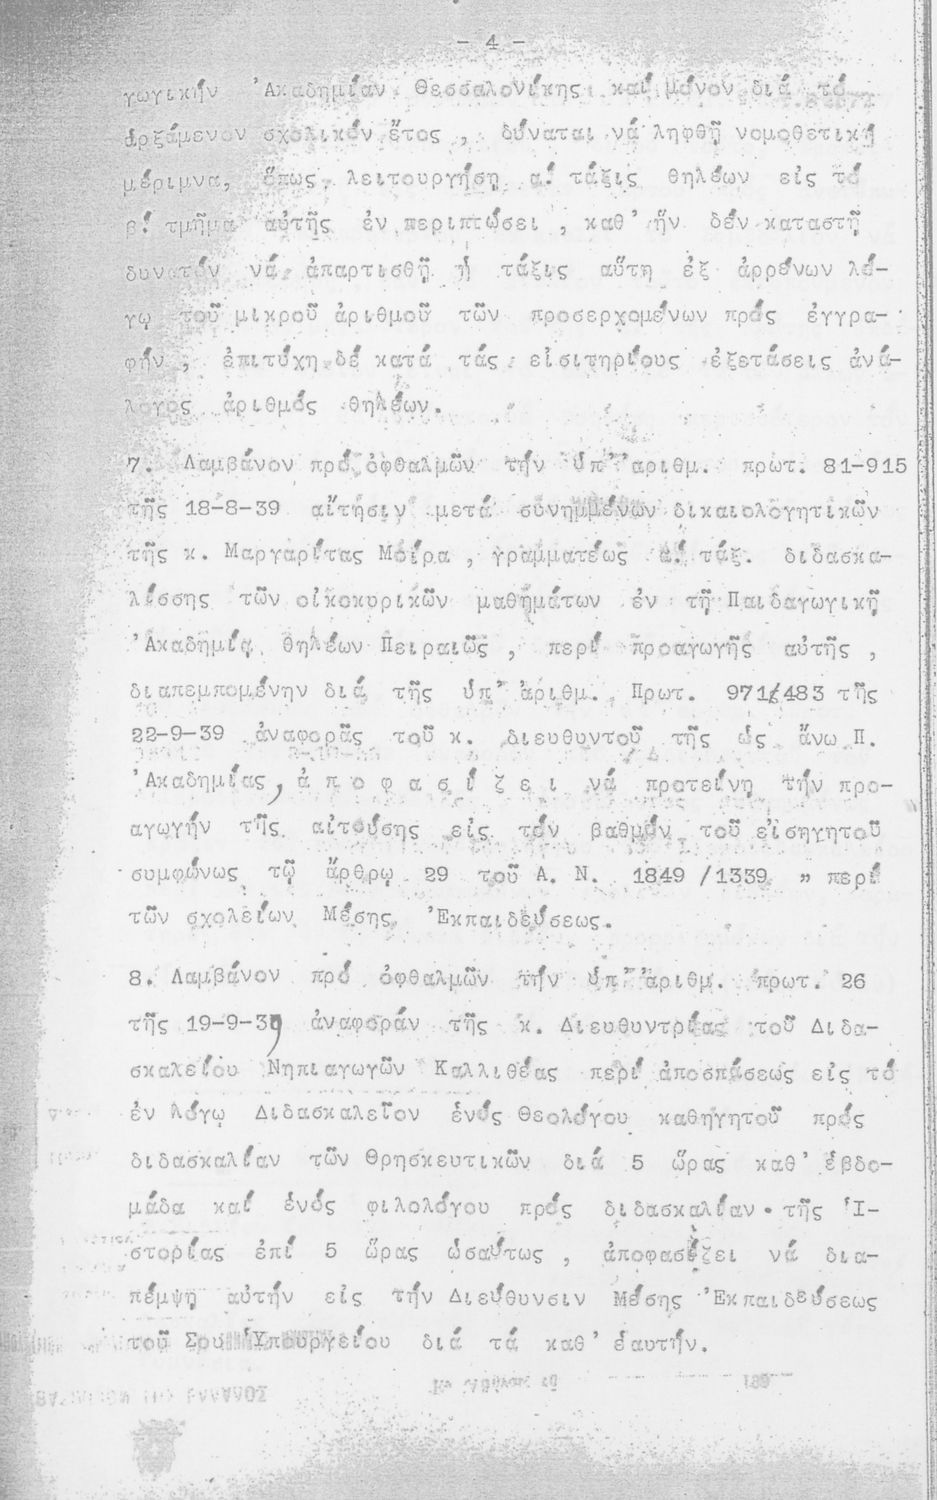 - 4 -
γωγικήν 'Ακαδημίαν Θεσσαλονίκης καί μόνον διά τό
ἀρξάμενον σχολικόν ἔτος , δύναται νά ληφθῇ νομοθετική
μέριμνα, ὅπως λειτουργήσῃ α! τάξις θηλέων εἰς τό
β! τμῆμα αὐτῆς ἐν περιπτώσει , καθ' ἥν δέν καταστῇ
δυνατόν νά ἀπαρτισθῇ ἡ τάξις αὕτη ἐξ ἀρρένων λό-
γῳ τοῦ μικροῦ ἀριθμοῦ τῶν προσερχομένων πρός ἐγγρα-
φήν , ἐπιτύχη δέ κατά τάς εἰσιτηρίους ἐξετάσεις ἀνά-
λογος ἀριθμός θηλέων.
7. Λαμβάνον πρό ὀφθαλμῶν τήν ὑπ' ἀριθμ. πρωτ. 81-915
τῆς 18-8-39 αἴτησιν μετά συνημμένων δικαιολογητικῶν
τῆς κ. Μαργαρίτας Μοίρα , γραμματέως α! τάξ. διδασκα-
λίσσης τῶν οἰκοκυρικῶν μαθημάτων ἐν τῇ Παιδαγωγικῇ
'Ακαδημίᾳ θηλέων Πειραιῶς , περί προαγωγῆς αὐτῆς ,
διαπεμπομένην διά τῆς ὑπ' ἀριθμ. Πρωτ. 971/483 τῆς
22-9-39 ἀναφορᾶς τοῦ κ. διευθυντοῦ τῆς ὡς ἄνω Π.
'Ακαδημίας, ἀ π ο φ α σ ί ζ ε ι νά προτείνη τήν προ-
αγωγήν τῆς αἰτούσης εἰς τόν βαθμόν τοῦ εἰσηγητοῦ
συμφώνως τῷ ἄρθρῳ 29 τοῦ Α. Ν. 1849 /1339 " περί
τῶν σχολείων Μέσης 'Εκπαιδεύσεως.
8. Λαμβάνον πρό ὀφθαλμῶν τήν ὑπ' ἀριθμ. πρωτ. 26
τῆς 19-9-39 ἀναφοράν τῆς κ. Διευθυντρίας τοῦ Διδα-
σκαλείου Νηπιαγωγῶν Καλλιθέας περί ἀποσπάσεως εἰς τό
ἐν λόγῳ Διδασκαλεῖον ἑνός Θεολόγου καθηγητοῦ πρός
διδασκαλίαν τῶν Θρησκευτικῶν διά 5 ὥρας καθ' ἑβδο-
μάδα καί ἑνός φιλολόγου πρός διδασκαλίαν τῆς 'Ι-
στορίας ἐπί 5 ὥρας ὡσαύτως , ἀποφασίζει νά δια-
πέμψη αὐτήν εἰς τήν Διεύθυνσιν Μέσης 'Εκπαιδεύσεως
τοῦ Σου Ὑπουργείου διά τά καθ' ἑαυτήν.